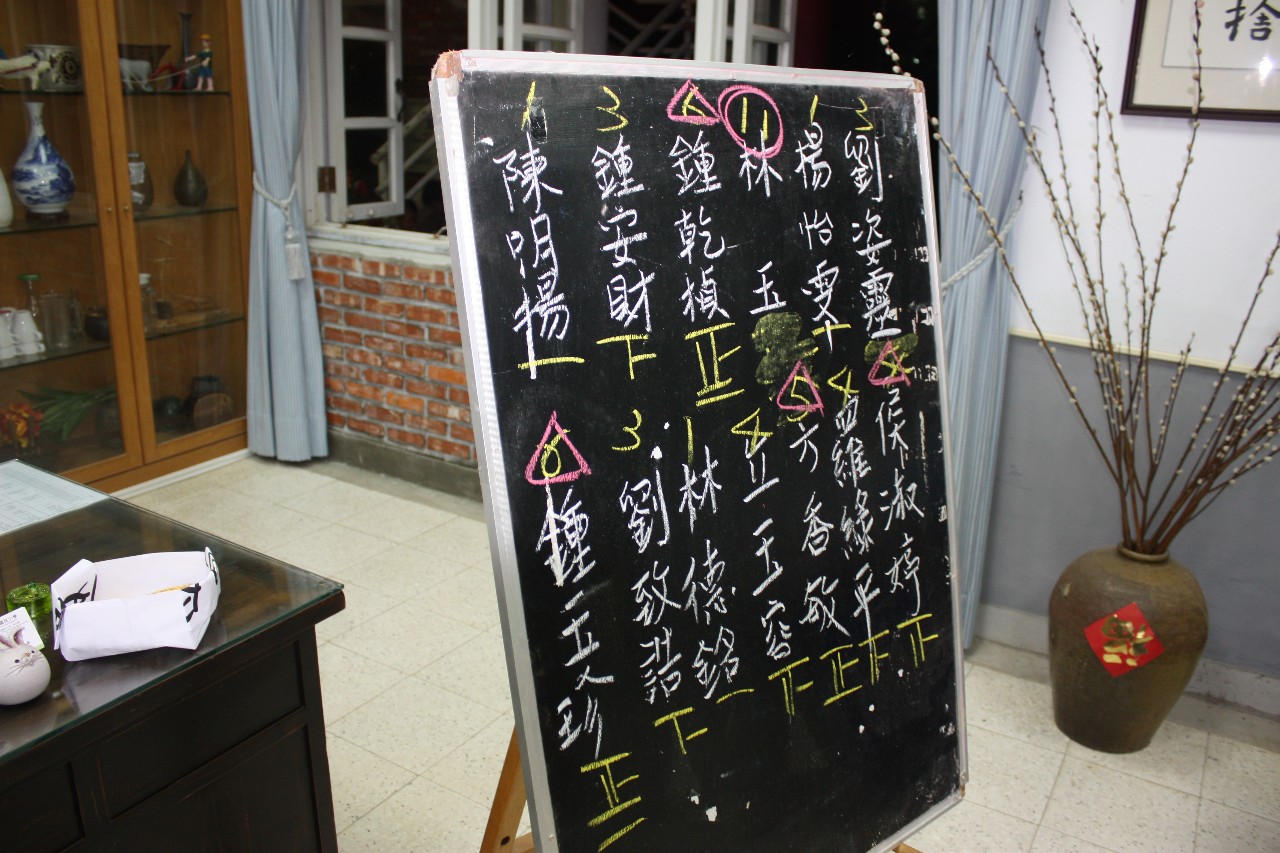 捨
3 劉姿靈
1 楊怡雯 一
11 林玉
6 鍾乾楨 正一
3 鍾安財 下
1 陳明揚 一
淑婷
4 羅綠平
5 方香敬 正
4 丘玉容
1 林德銘 一
3 劉致誥 下
6 鍾玉珍 正一